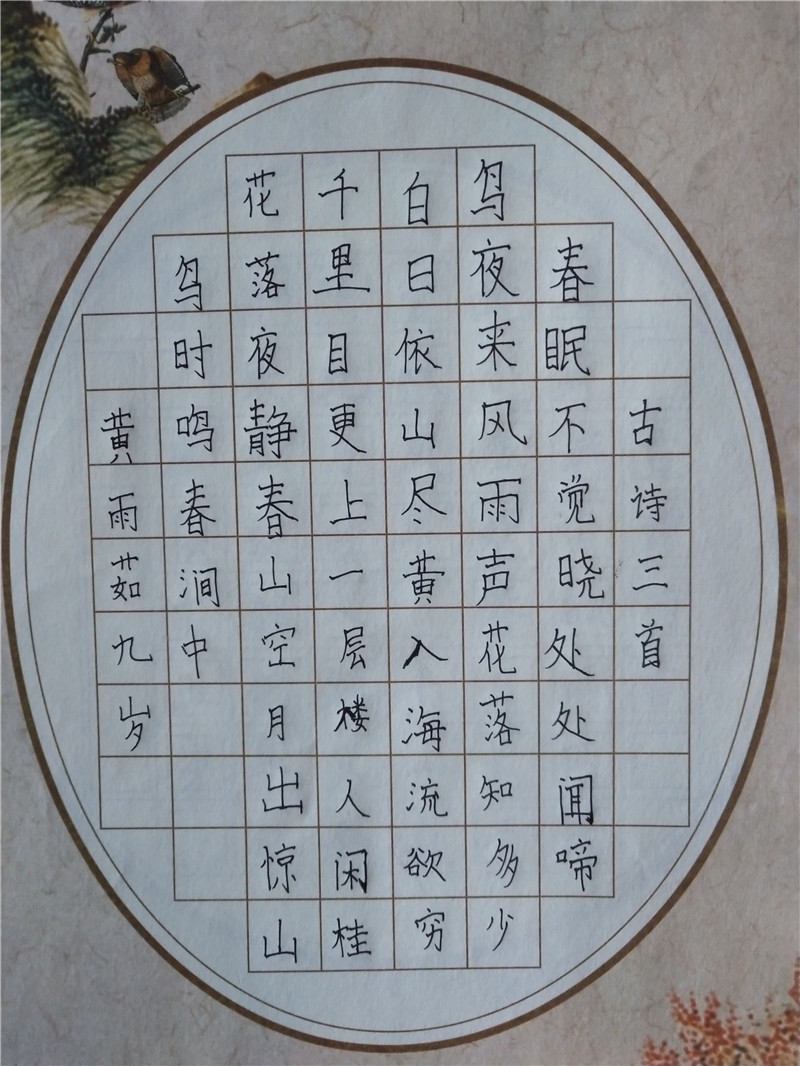 古诗三首
春眠不觉晓处处闻啼
鸟夜来风雨声花落知多少
白日依山尽黄入海流欲穷
千里目更上一层楼人闲桂
花落夜静春山空月出惊山
鸟时鸣春涧中
黄雨茹九岁